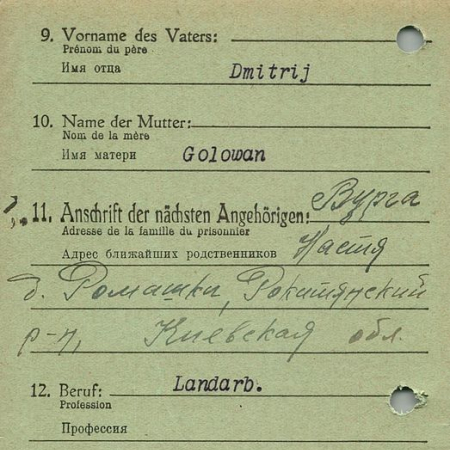 9. Vorname des Vaters:
Prénom du père
Имя отца Dmitrij
10. Name der Mutter:
Nom de la mère
Имя матери Golowan
11. Anschrift der nächsten Angehörigen: Вурга
Adresse de la famille du prisonnier
Адрес ближайших родственников Настя
д. Ромашки, Рокитянский
р-н, Киевская обл.
12. Beruf: Landarb.
Profession
Профессия